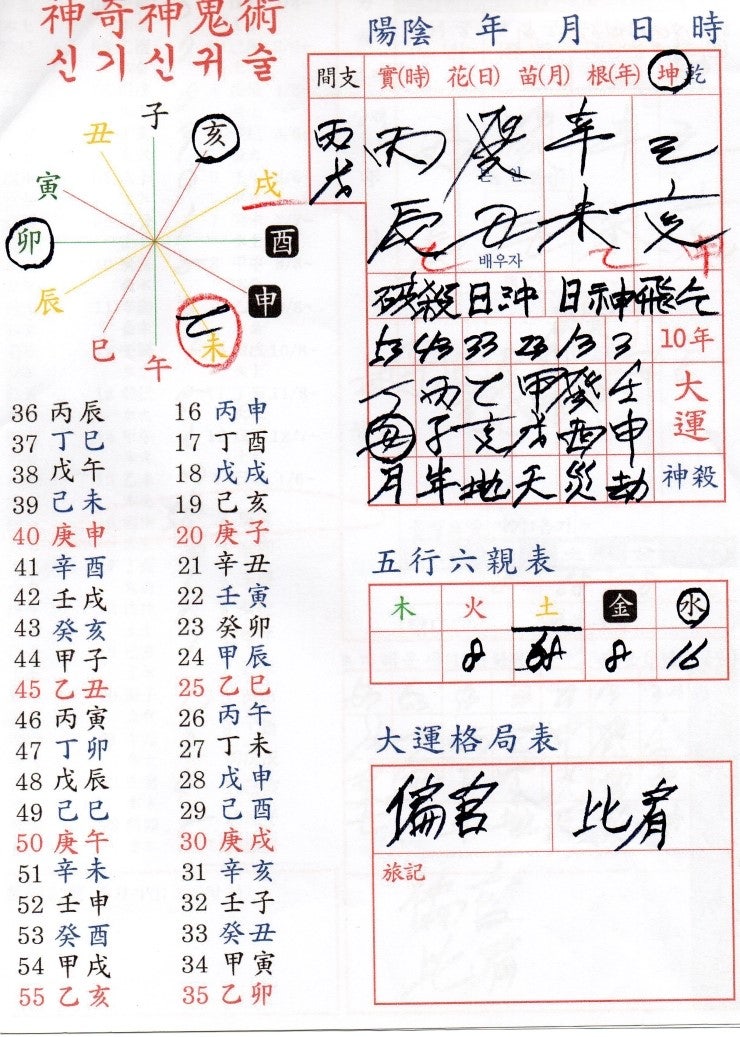 神奇神鬼術
신기신귀술
陽陰 年 月 日 時
間支 實(時) 花(日) 苗(月) 根(年) 坤乾
丙 丙 癸 辛 己
戌 辰 丑 未 亥
배우자
乙 乙 午
破殺 日沖 日神 飛亡
53 43 33 23 13 3 10年
丁 丙 乙 甲 癸 壬 大
丑 子 亥 戌 酉 申 運
月 年 地 天 災 劫 神殺
子
丑 亥
寅 戌
卯 酉
辰 申
乙
巳 未
午
五行六親表
木 火 土 金 水
8 8 16
大運格局表
偏官 比肩
旅記
36 丙辰 16 丙申
37 丁巳 17 丁酉
38 戊午 18 戊戌
39 己未 19 己亥
40 庚申 20 庚子
41 辛酉 21 辛丑
42 壬戌 22 壬寅
43 癸亥 23 癸卯
44 甲子 24 甲辰
45 乙丑 25 乙巳
46 丙寅 26 丙午
47 丁卯 27 丁未
48 戊辰 28 戊申
49 己巳 29 己酉
50 庚午 30 庚戌
51 辛未 31 辛亥
52 壬申 32 壬子
53 癸酉 33 癸丑
54 甲戌 34 甲寅
55 乙亥 35 乙卯